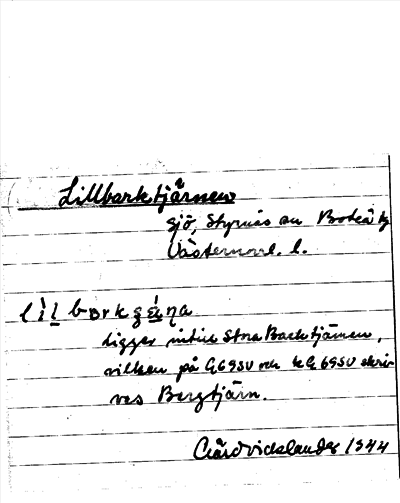 Lillbarktjärnen
sjö, Styrnäs sn Boteå tg
Västernorrl. l.
lìl barkʒɛ́ṇa
ligger intill Stora Backtjärnen,
vilken på G 69 SV och kG 69 SV skri-
ves Bergtjärn.
Gårdvidslander 1944